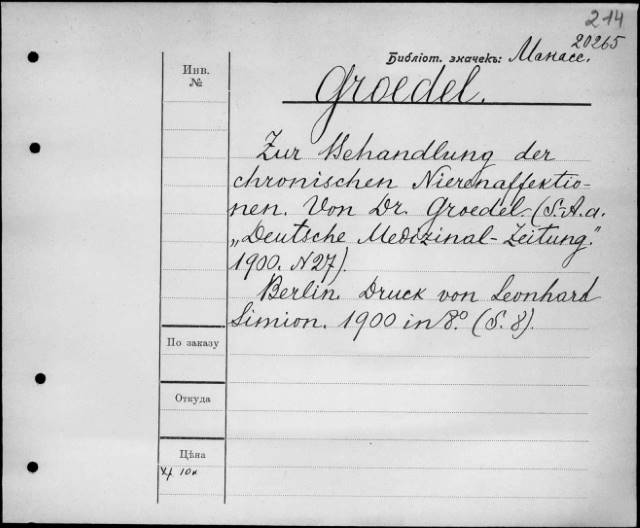 214
20265
Библіот. значекъ: Манасс.
Инв.
№
Groedel.
Zur Behandlung der
chronischen Nierenaffektio-
nen. Von Dr. Groedel-(S.-A. a.
„Deutsche Medizinal-Zeitung."
1900. N27).
Berlin. Druck von Leonhard
Simion. 1900 in 8.° (S. 8).
По заказу
Откуда
Цѣна
10к